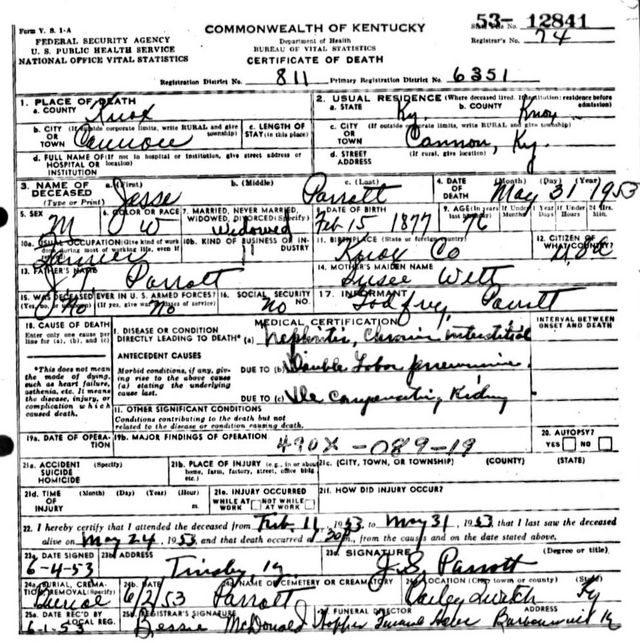 Form V. S. 1-A
FEDERAL SECURITY AGENCY
U. S. PUBLIC HEALTH SERVICE
NATIONAL OFFICE VITAL STATISTICS
COMMONWEALTH OF KENTUCKY
Department of Health
BUREAU OF VITAL STATISTICS
CERTIFICATE OF DEATH
53- 12841
Registrar's No. 74
Registration District No. 811 Primary Registration District No. 6351
1. PLACE OF DEATH
a. COUNTY Knox
2. USUAL RESIDENCE (Where deceased lived. If institution: residence before admission)
a. STATE Ky. b. COUNTY Knox
b. CITY (If outside corporate limits, write RURAL and give township) OR TOWN Cannon
c. LENGTH OF STAY (in this place)
c. CITY (If outside corporate limits, write RURAL and give township) OR TOWN Cannon, Ky.
d. FULL NAME OF (If not in hospital or institution, give street address or location) HOSPITAL OR INSTITUTION
d. STREET ADDRESS (If rural, give location)
3. NAME OF DECEASED (Type or Print) a. (First) Jesse b. (Middle) c. (Last) Parrott
4. DATE OF DEATH (Month) (Day) (Year) May 31 1953
5. SEX M
6. COLOR OR RACE W
7. MARRIED, NEVER MARRIED, WIDOWED, DIVORCED (Specify) widowed
8. DATE OF BIRTH Feb 15 1877
9. AGE (In years last birthday) 76 If Under 1 Year Months Days If Under 24 Hrs. Hours Min.
10a. USUAL OCCUPATION (Give kind of work done during most of working life, even if retired) Farmer
10b. KIND OF BUSINESS OR INDUSTRY 11
11. BIRTHPLACE (State or foreign country) Knox Co
12. CITIZEN OF WHAT COUNTRY? USA
13. FATHER'S NAME Parrott
14. MOTHER'S MAIDEN NAME Witt
15. WAS DECEASED EVER IN U. S. ARMED FORCES? (Yes, no, or unknown) (If yes, give war or dates of service) No No
16. SOCIAL SECURITY NO. No
17. INFORMANT Godfrey Parrott
18. CAUSE OF DEATH
Enter only one cause per line for (a), (b), and (c)
*This does not mean the mode of dying, such as heart failure, asthenia, etc. It means the disease, injury, or complication which caused death.
MEDICAL CERTIFICATION
INTERVAL BETWEEN ONSET AND DEATH
I. DISEASE OR CONDITION DIRECTLY LEADING TO DEATH* (a) Nephritis, Chronic interstitial
ANTECEDENT CAUSES
Morbid conditions, if any, giving rise to the above cause (a) stating the underlying cause last.
DUE TO (b) Double Lobar pneumonia
DUE TO (c) Kidney
II. OTHER SIGNIFICANT CONDITIONS
Conditions contributing to the death but not related to the disease or condition causing death.
19a. DATE OF OPERATION
19b. MAJOR FINDINGS OF OPERATION 490X-089-19
20. AUTOPSY? YES NO
21a. ACCIDENT SUICIDE HOMICIDE (Specify)
21b. PLACE OF INJURY (e.g., in or about home, farm, factory, street, office bldg., etc.)
21c. (CITY, TOWN, OR TOWNSHIP) (COUNTY) (STATE)
21d. TIME OF INJURY (Month) (Day) (Year) (Hour) m.
21e. INJURY OCCURRED WHILE AT WORK NOT WHILE AT WORK
21f. HOW DID INJURY OCCUR?
22. I hereby certify that I attended the deceased from Feb 11, 1953, to May 31, 1953, that I last saw the deceased
alive on May 24, 1953, and that death occurred at m., from the causes and on the date stated above.
23a. DATE SIGNED 6-4-53
23b. ADDRESS Tinsley Ky
23c. SIGNATURE J. S. Parrott (Degree or title)
24a. BURIAL, CREMATION, REMOVAL (Specify) Burial
24b. DATE 6/2/53
24c. NAME OF CEMETERY OR CREMATORY Parrott
24d. LOCATION (City, town or county) (State) Bailey Switch Ky
25a. DATE REC'D BY LOCAL REG. 6-1-53
25b. REGISTRAR'S SIGNATURE Bessie McDonald
26. FUNERAL DIRECTOR Hopper Funeral Home Barbourville Ky